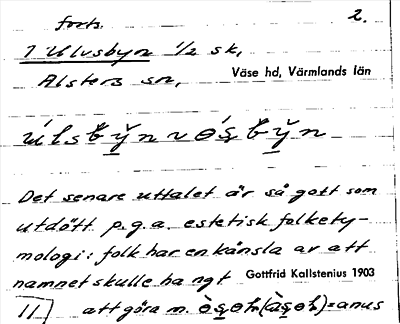 forts. 2.
1 Ulvsbyn 1/2 sk,
Alsters sn, Väse hd, Värmlands län
Det senare uttalet är så gott som
utdött p.g.a. estetisk folkety-
mologi: folk har en känsla av att
namnet skulle ha ngt Gottfrid Kallstenius 1903
11) att göra m. =anus